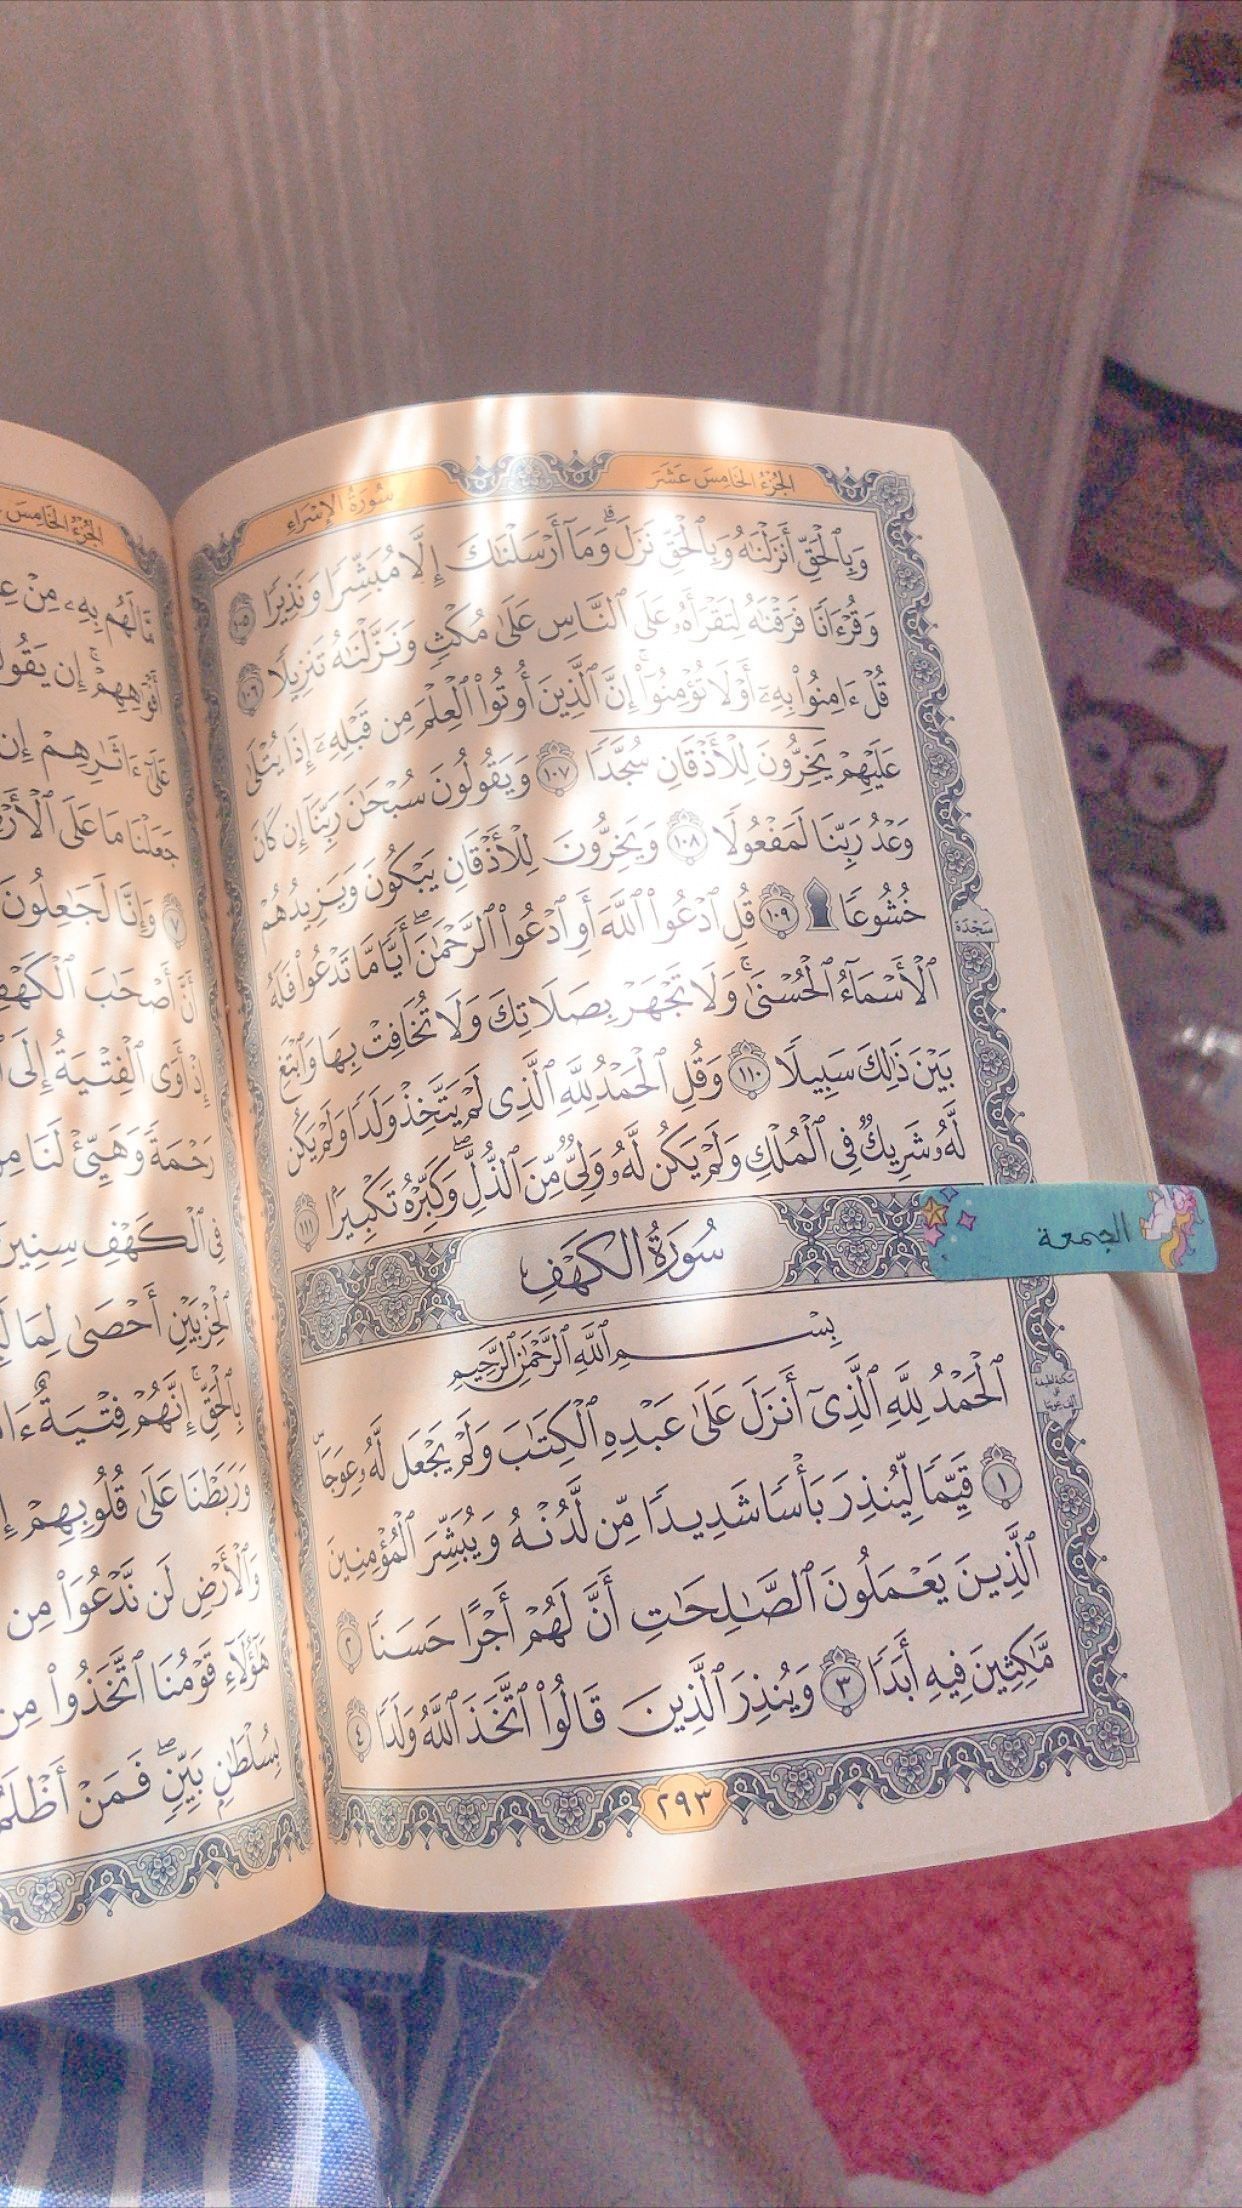 الجزء الخامس عشر
سورة الإسراء
وَبِٱلۡحَقِّ أَنزَلۡنَٰهُ وَبِٱلۡحَقِّ نَزَلَۗ وَمَآ أَرۡسَلۡنَٰكَ إِلَّا مُبَشِّرٗا وَنَذِيرٗا ١٠٥
وَقُرۡءَانٗا فَرَقۡنَٰهُ لِتَقۡرَأَهُۥ عَلَى ٱلنَّاسِ عَلَىٰ مُكۡثٖ وَنَزَّلۡنَٰهُ تَنزِيلٗا ١٠٦
قُلۡ ءَامِنُواْ بِهِۦٓ أَوۡ لَا تُؤۡمِنُوٓاْۚ إِنَّ ٱلَّذِينَ أُوتُواْ ٱلۡعِلۡمَ مِن قَبۡلِهِۦٓ إِذَا يُتۡلَىٰ
عَلَيۡهِمۡ يَخِرُّونَۤ لِلۡأَذۡقَانِۤ سُجَّدٗاۤ ١٠٧ وَيَقُولُونَ سُبۡحَٰنَ رَبِّنَآ إِن كَانَ
وَعۡدُ رَبِّنَا لَمَفۡعُولٗا ١٠٨ وَيَخِرُّونَ لِلۡأَذۡقَانِ يَبۡكُونَ وَيَزِيدُهُمۡ
خُشُوعٗا ۩ ١٠٩ قُلِ ٱدۡعُواْ ٱللَّهَ أَوِ ٱدۡعُواْ ٱلرَّحۡمَٰنَۖ أَيّٗا مَّا تَدۡعُواْ فَلَهُ
ٱلۡأَسۡمَآءُ ٱلۡحُسۡنَىٰۚ وَلَا تَجۡهَرۡ بِصَلَاتِكَ وَلَا تُخَافِتۡ بِهَا وَٱبۡتَغِ
بَيۡنَ ذَٰلِكَ سَبِيلٗا ١١٠ وَقُلِ ٱلۡحَمۡدُ لِلَّهِ ٱلَّذِي لَمۡ يَتَّخِذۡ وَلَدٗا وَلَمۡ يَكُن
لَّهُۥ شَرِيكٞ فِي ٱلۡمُلۡكِ وَلَمۡ يَكُن لَّهُۥ وَلِيّٞ مِّنَ ٱلذُّلِّۖ وَكَبِّرۡهُ تَكۡبِيرَۢا ١١١
سجدة
الجمعة
سورة الكهف
بِسۡمِ ٱللَّهِ ٱلرَّحۡمَٰنِ ٱلرَّحِيمِ
ٱلۡحَمۡدُ لِلَّهِ ٱلَّذِيٓ أَنزَلَ عَلَىٰ عَبۡدِهِ ٱلۡكِتَٰبَ وَلَمۡ يَجۡعَل لَّهُۥ عِوَجَاۜ
١ قَيِّمٗا لِّيُنذِرَ بَأۡسٗا شَدِيدٗا مِّن لَّدُنۡهُ وَيُبَشِّرَ ٱلۡمُؤۡمِنِينَ
ٱلَّذِينَ يَعۡمَلُونَ ٱلصَّٰلِحَٰتِ أَنَّ لَهُمۡ أَجۡرًا حَسَنٗا ٢
مَّٰكِثِينَ فِيهِ أَبَدٗا ٣ وَيُنذِرَ ٱلَّذِينَ قَالُواْ ٱتَّخَذَ ٱللَّهُ وَلَدٗا ٤
٢٩٣
الجزء الخامس
لَهُم بِهِۦ مِنۡ
إِن
عَلَىٰٓ ءَاثَٰرِهِمۡ إِن
جَعَلۡنَا مَا عَلَى
٧ وَإِنَّا لَجَٰعِلُونَ
أَنَّ أَصۡحَٰبَ
إِذۡ أَوَى ٱلۡفِتۡيَةُ إِلَى
رَحۡمَةٗ وَهَيِّئۡ لَنَا
فِي ٱلۡكَهۡفِ سِنِينَ
ٱلۡحِزۡبَيۡنِ أَحۡصَىٰ لِمَا
بِٱلۡحَقِّۚ إِنَّهُمۡ فِتۡيَةٌ
وَرَبَطۡنَا عَلَىٰ قُلُوبِهِمۡ
وَٱلۡأَرۡضِ لَن نَّدۡعُوَاْ مِن
هَٰٓؤُلَآءِ قَوۡمُنَا ٱتَّخَذُواْ مِن
بِسُلۡطَٰنِۭ بَيِّنٖۖ فَمَنۡ